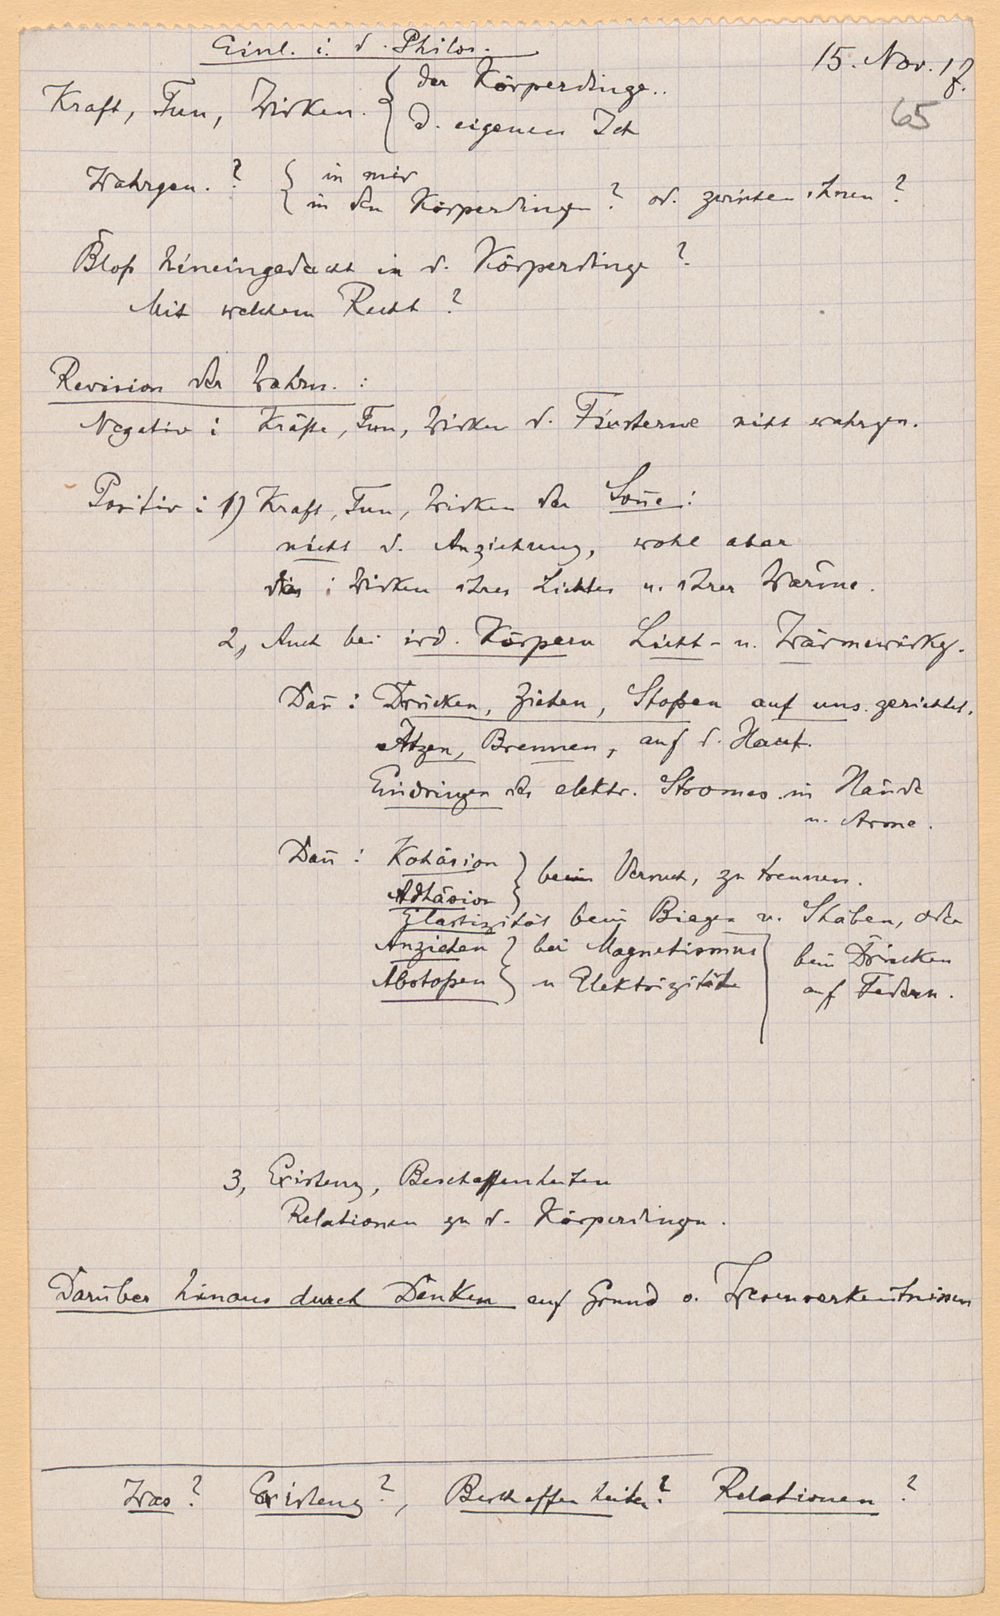 Einl. i. d. Philos.
15. Nov. 17.
65
Kraft, Tun, Wirken. { der Körperdinge..
d. eigenen Ich
Wahrgen. ? { in mir
in den Körperdingen ? od. zwischen ihnen ?
Bloß hineingedacht in d. Körperdinge ?
Mit welchem Recht ?
Revision der Wahrn. :
Negativ : Kräfte, Tun, Wirken d. Fixsterne nicht wahrgen.
Positiv : 1) Kraft, Tun, Wirken der Sonne :
nicht d. Anziehung, wohl aber
das : Wirken ihres Lichtes u. ihrer Wärme.
2, Auch bei ird. Körpern Licht- u. Wärmewirkg.
Dan̄ : Drücken, Ziehen, Stoßen auf uns gerichtet.
Ätzen, Brennen, auf d. Haut.
Eindringen des elektr. Stromes in Hände
u. Arme.
Dan̄ : Kohäsion } beim Versuch, zu trennen.
Adhäsion
Elastizität beim Biegen v. Stäben, oder
Anziehen } bei Magnetismus } beim Drücken
Abstoßen } u Elektrizität auf Federn.
3, Existenz, Beschaffenheiten
Relationen zu d. Körperdingen.
Darüber hinaus durch Denken auf Grund v. Wesenserken̄tnissen
Was ? Existenz ?, Beschaffenheiten ? Relationen ?